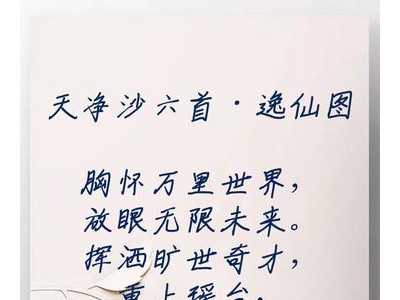 天净沙六首·逸仙图
胸怀万里世界，
放眼无限未来。
挥洒旷世奇才，
重上瑶台